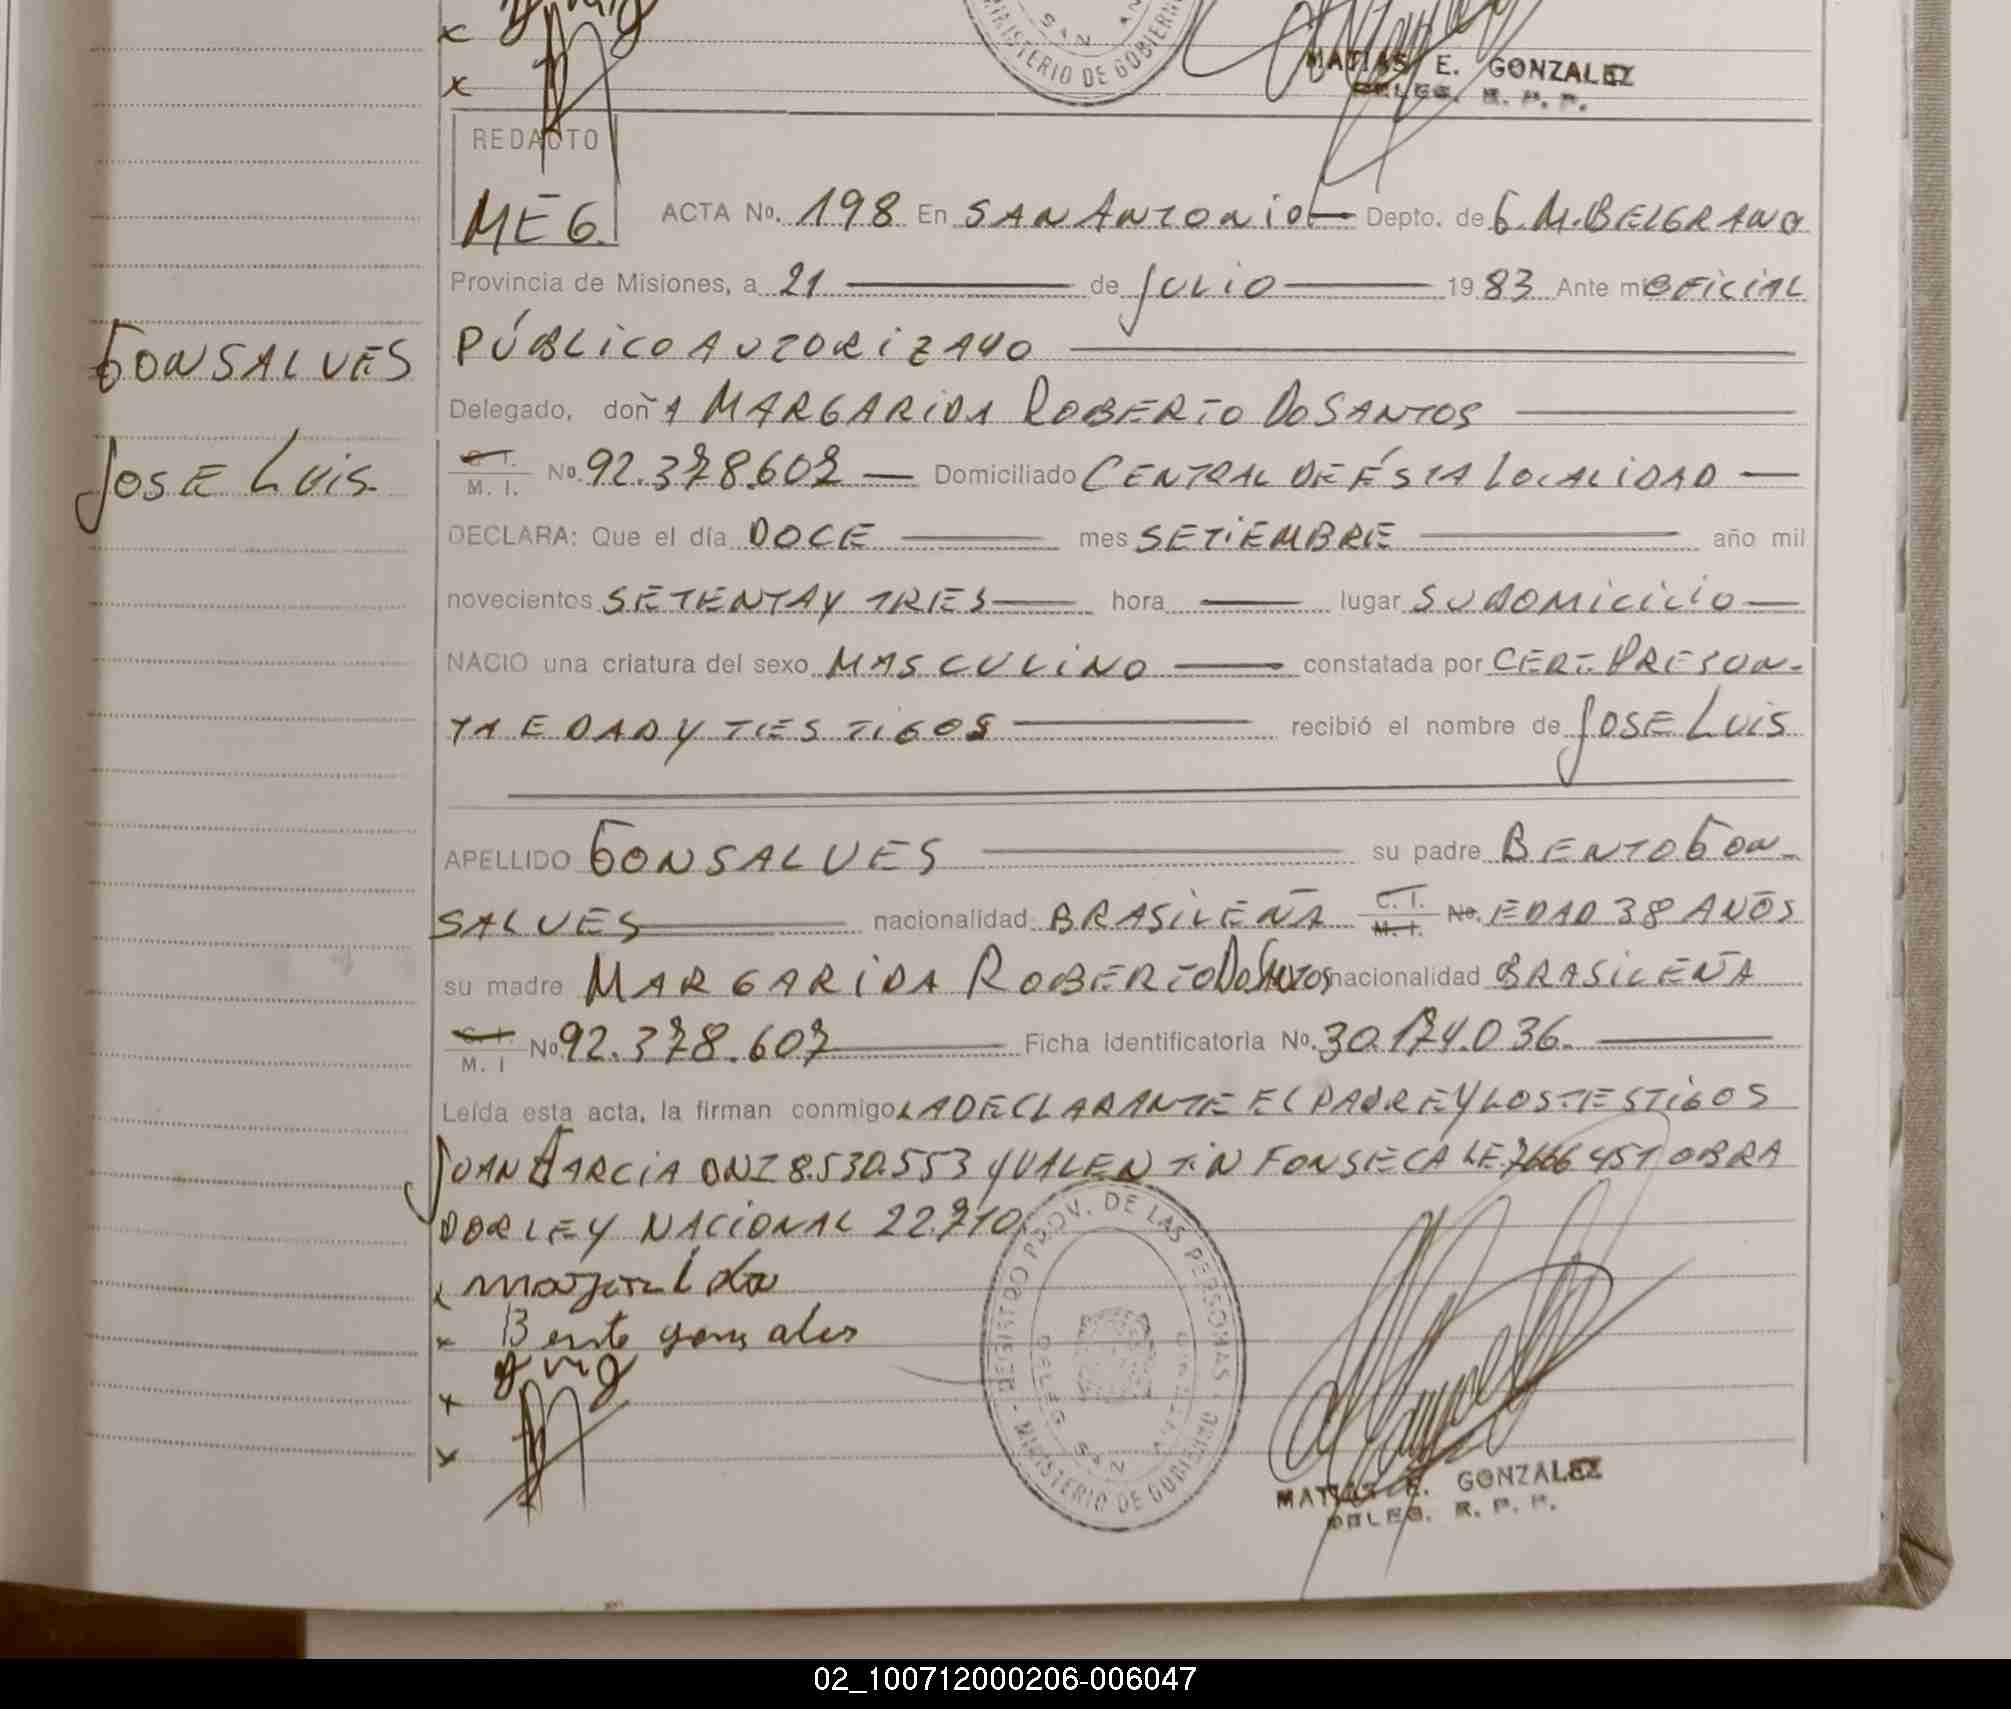 x
x
MINISTERIO DE GOBIERNO
SAN AN
MATIAS E. GONZALEZ
DELEG. R. P. P.
REDACTO
MEG.
ACTA No. 198 En SAN ANTONIO — Depto. de G. M. BELGRANO
Provincia de Misiones, a 21 — de JULIO — 1983 Ante mi OFICIAL
PÚBLICO AUTORIZADO —
GONSALVES
Delegado, doñA MARGARIDA ROBERTO DOSANTOS —
JOSE LUIS
C. I.
M. I.
No. 92.378.607 — Domiciliado CENTRAL DE ÉSTA LOCALIDAD —
DECLARA: Que el día DOCE — mes SETIEMBRE — año mil
novecientos SETENTA Y TRES — hora — lugar SU DOMICILIO —
NACIO una criatura del sexo MASCULINO — constatada por CERT. PRESUN-
TA EDAD Y TESTIGOS — recibió el nombre de JOSE LUIS
APELLIDO GONSALVES — su padre BENTO GON-
SALVES — nacionalidad BRASILEÑA C. I. M. I. No. EDAD 38 AÑOS
su madre MARGARIDA ROBERTO DOSANTOS nacionalidad BRASILEÑA
C. I.
M. I
No. 92.378.607 — Ficha identificatoria No. 30.174.036. —
Leída esta acta, la firman conmigo LA DECLARANTE EL PADRE Y LOS TESTIGOS
JUAN GARCIA DNI 8.530.553 Y VALENTIN FONSECA LE 7666451 OBRA
DOR LEY NACIONAL 22.710
x margarida
x Bento gonsales
x
x
REGISTRO PROV. DE LAS PERSONAS - MINISTERIO DE GOBIERNO -
DELEG. SAN ANTONIO
MATIAS E. GONZALEZ
DELEG. R. P. P.
02_100712000206-006047